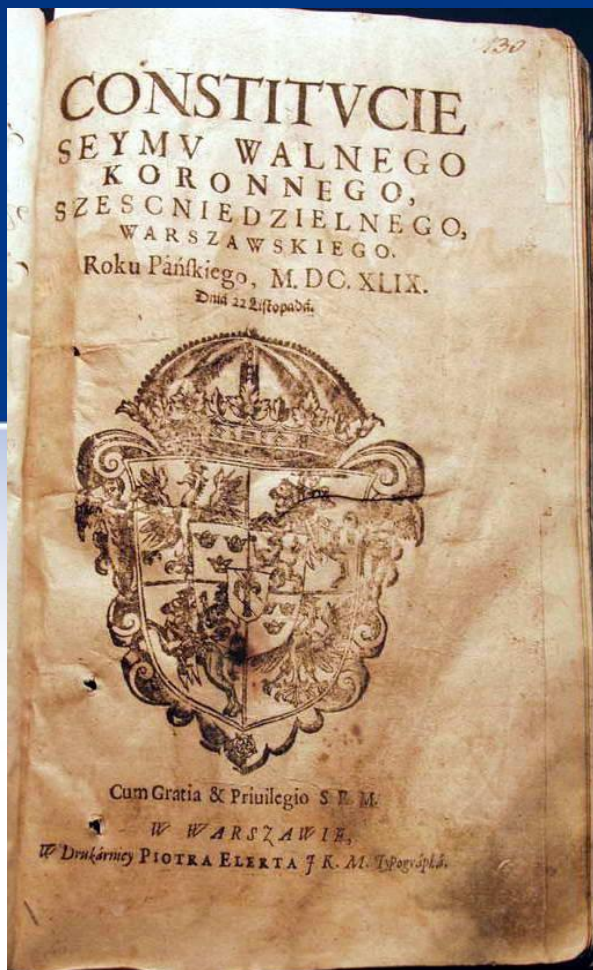 130
CONSTITVCIE
SEYMV WALNEGO
KORONNEGO,
SZESCNIEDZIELNEGO,
WARSZAWSKIEGO.
Roku Páńſkiego, M. DC. XLIX.
Dniá 22 Liſtopadá.
Cum Gratia & Priuilegio S. R. M.
W WARSZAWIE,
W Drukárniey PIOTRA ELERTA J K. M. Typográphá.